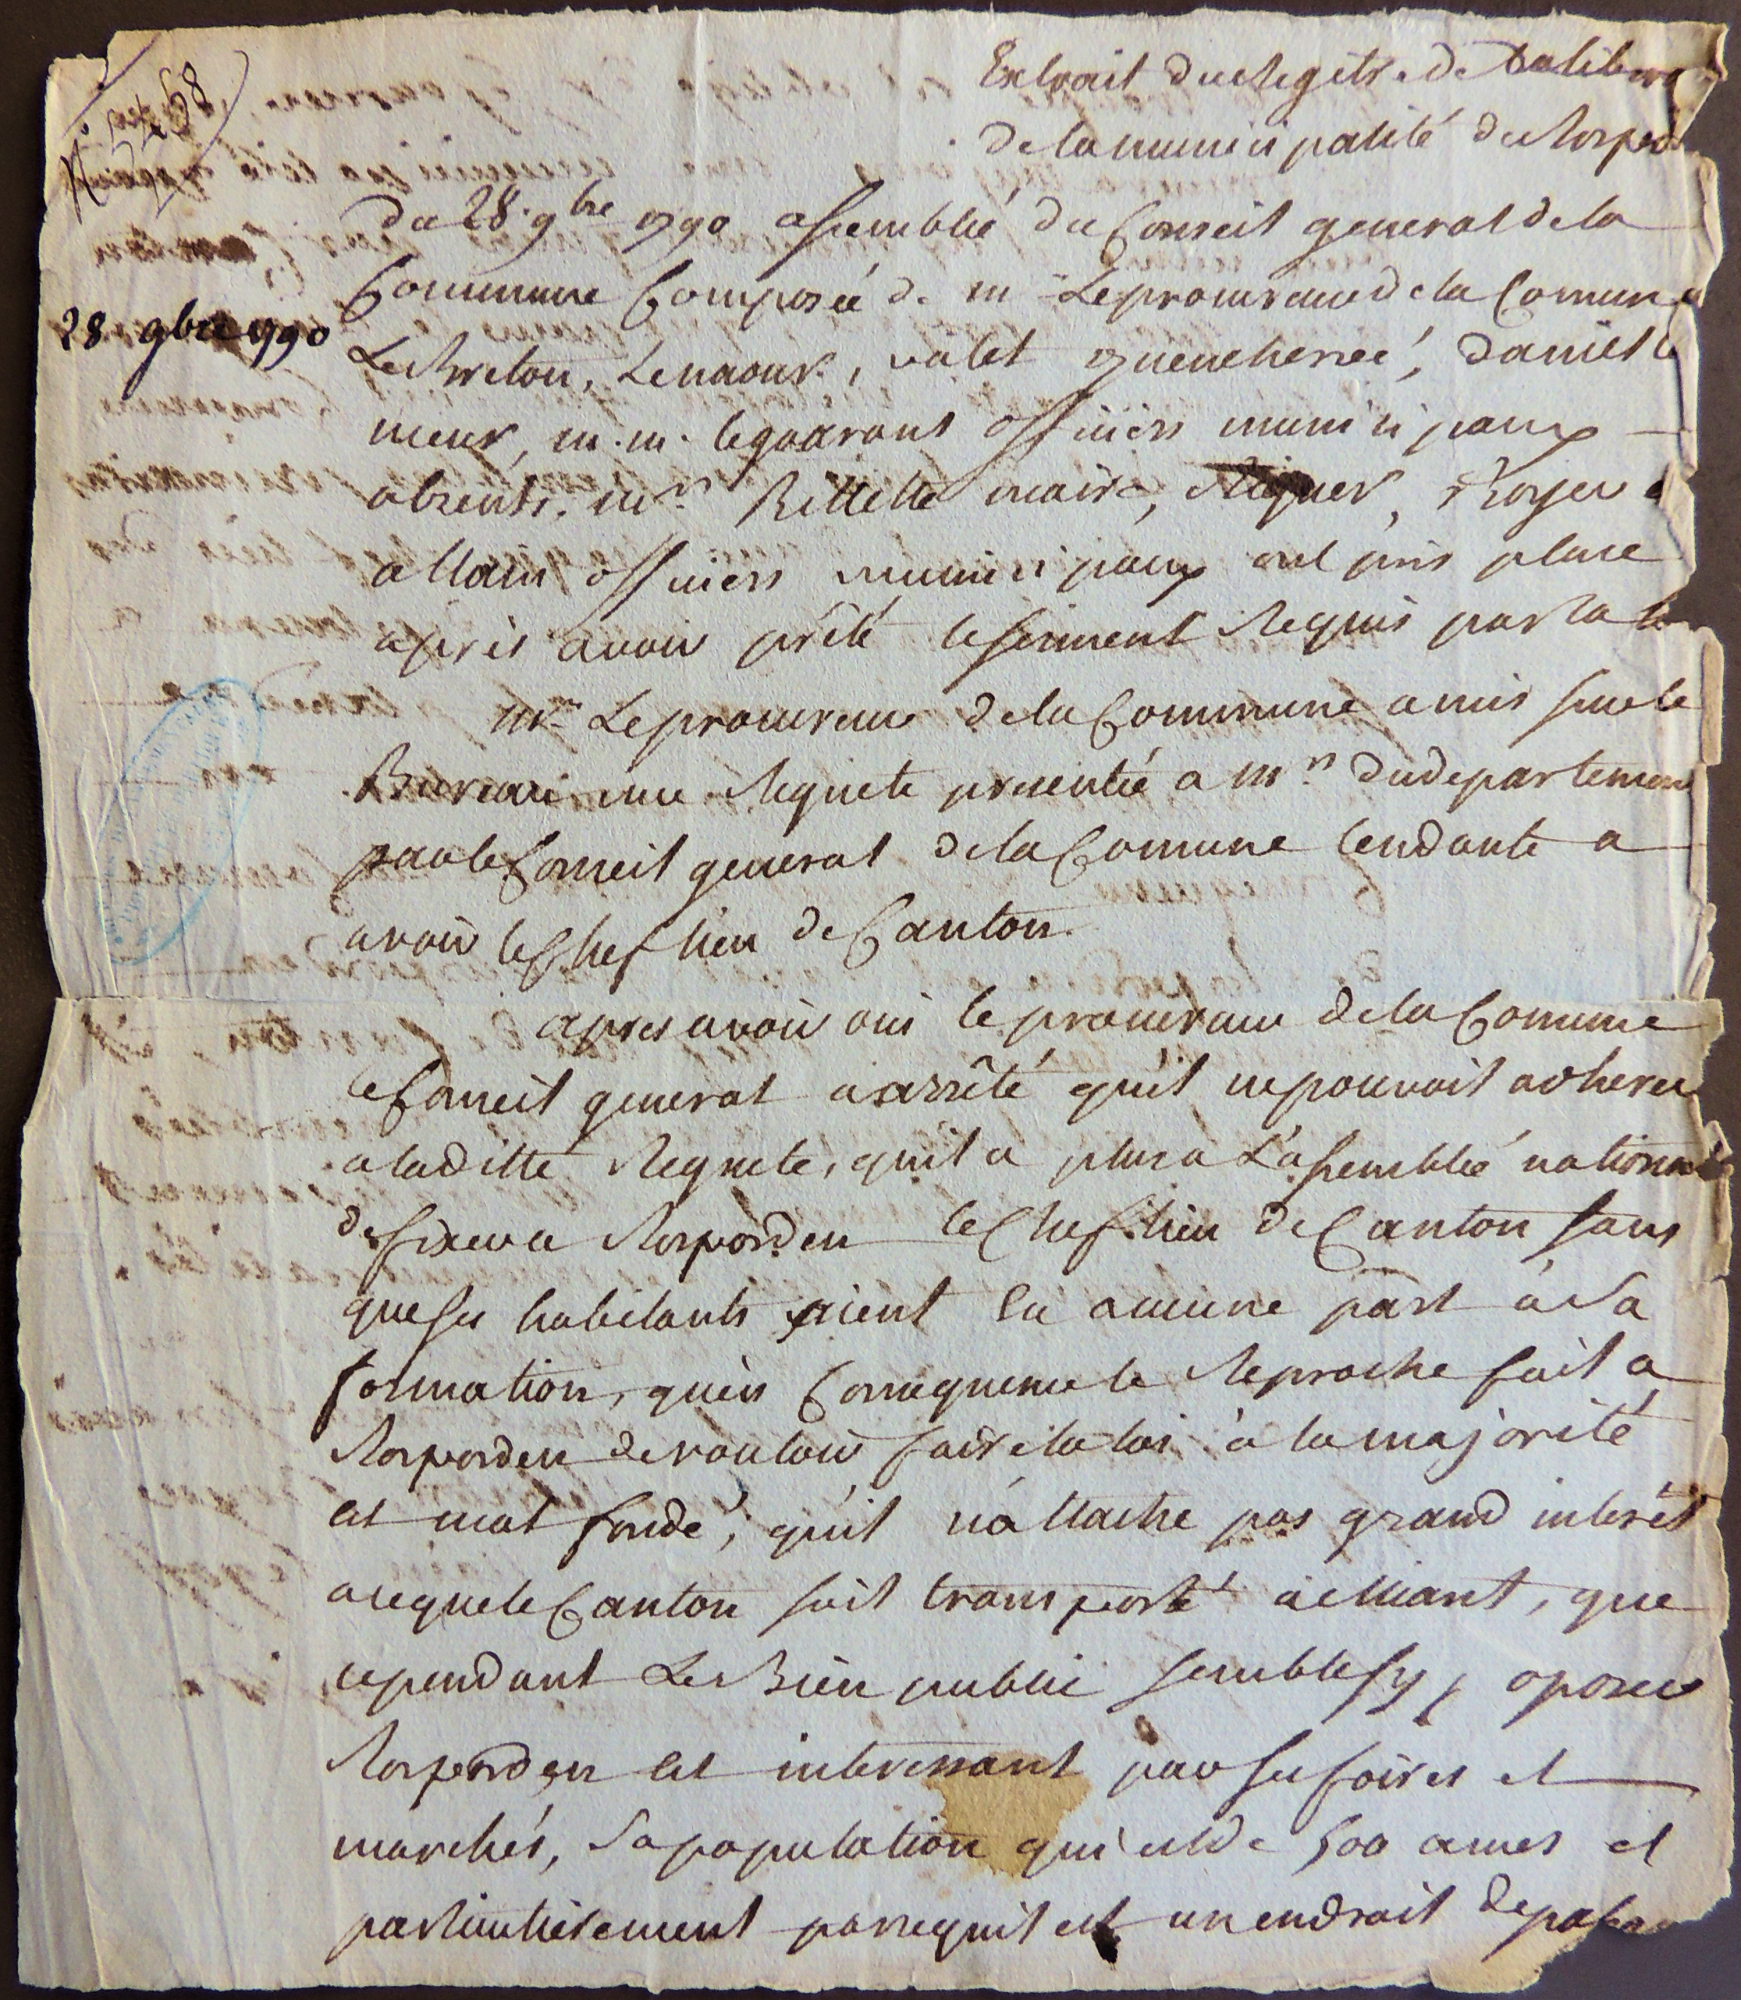 Extrait du Regitre de Deliber
de la municipalité de Rospord
N. 
du 28. 9bre 1790 assemblée du Conseil general de la
28 9bre 1790
Commune Composée de m. Le procureur de la Comune
Le Breton, Lenaour, valet quenehervé, Daniel le
meur, m. m. legoarant officiers municipaux
absents. mrs. Billette maire, Roger
allain officiers municipaux ont pris place
après avoir prété le serment Requis par la
mr. Le procureur de la Commune a mis sur le
Bureau une Requete presentée a mrs. du departement
par le Conseil general de la Comune tendante a
avoir le Chef lieu de Canton.
apres avoir oui le procureur de la Comune
le Conseil general a arrêté qu'il ne pouvoit adherer
a la ditte Requete, qu'il a plu a L'assemblée nationale
de fixer a Rosporden le Chef lieu de Canton sans
que ses habitants aient Eu aucune part à Sa
formation, qu'en Consequence le Reproche fait a
Rosporden de vouloir faire la loi à la majorité
est mal fondé, qu'il n'attache pas grand interêt
a ce que le Canton soit transporté a elliant, que
cependant Le Bien public semble s'y oposer
Rosporden Est interessant par ses foires et
marchés, Sa population qui est de 500 ames et
particulièrement parcequ'il est un endroit de passage